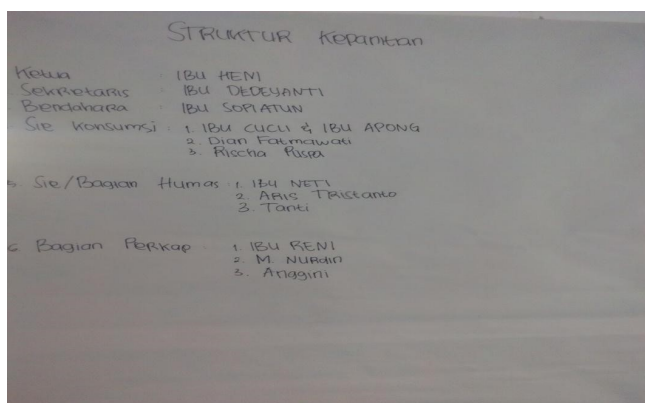 STRUKTUR Kepanitian
Ketua : IBU HENI
Sekretaris : IBU DEDEYANTI
Bendahara : IBU SOPIATUN
Sie Konsumsi : 1. IBU CUCU & IBU APONG
2. Dian Fatmawati
3. Rischa Puspa
5. Sie/Bagian Humas : 1. IBU NETI
2. ARIS TRistanto
3. Tanti
6. Bagian Perkap : 1. IBU RENI
2. M. NURdin
3. Anggini